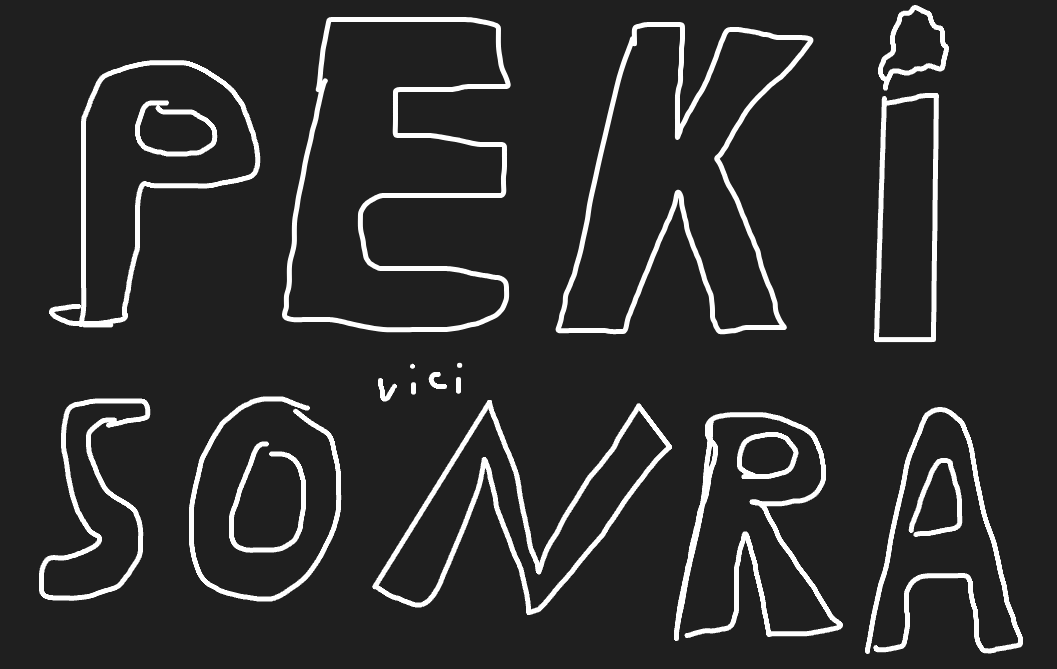 PEKİ
vici
SONRA